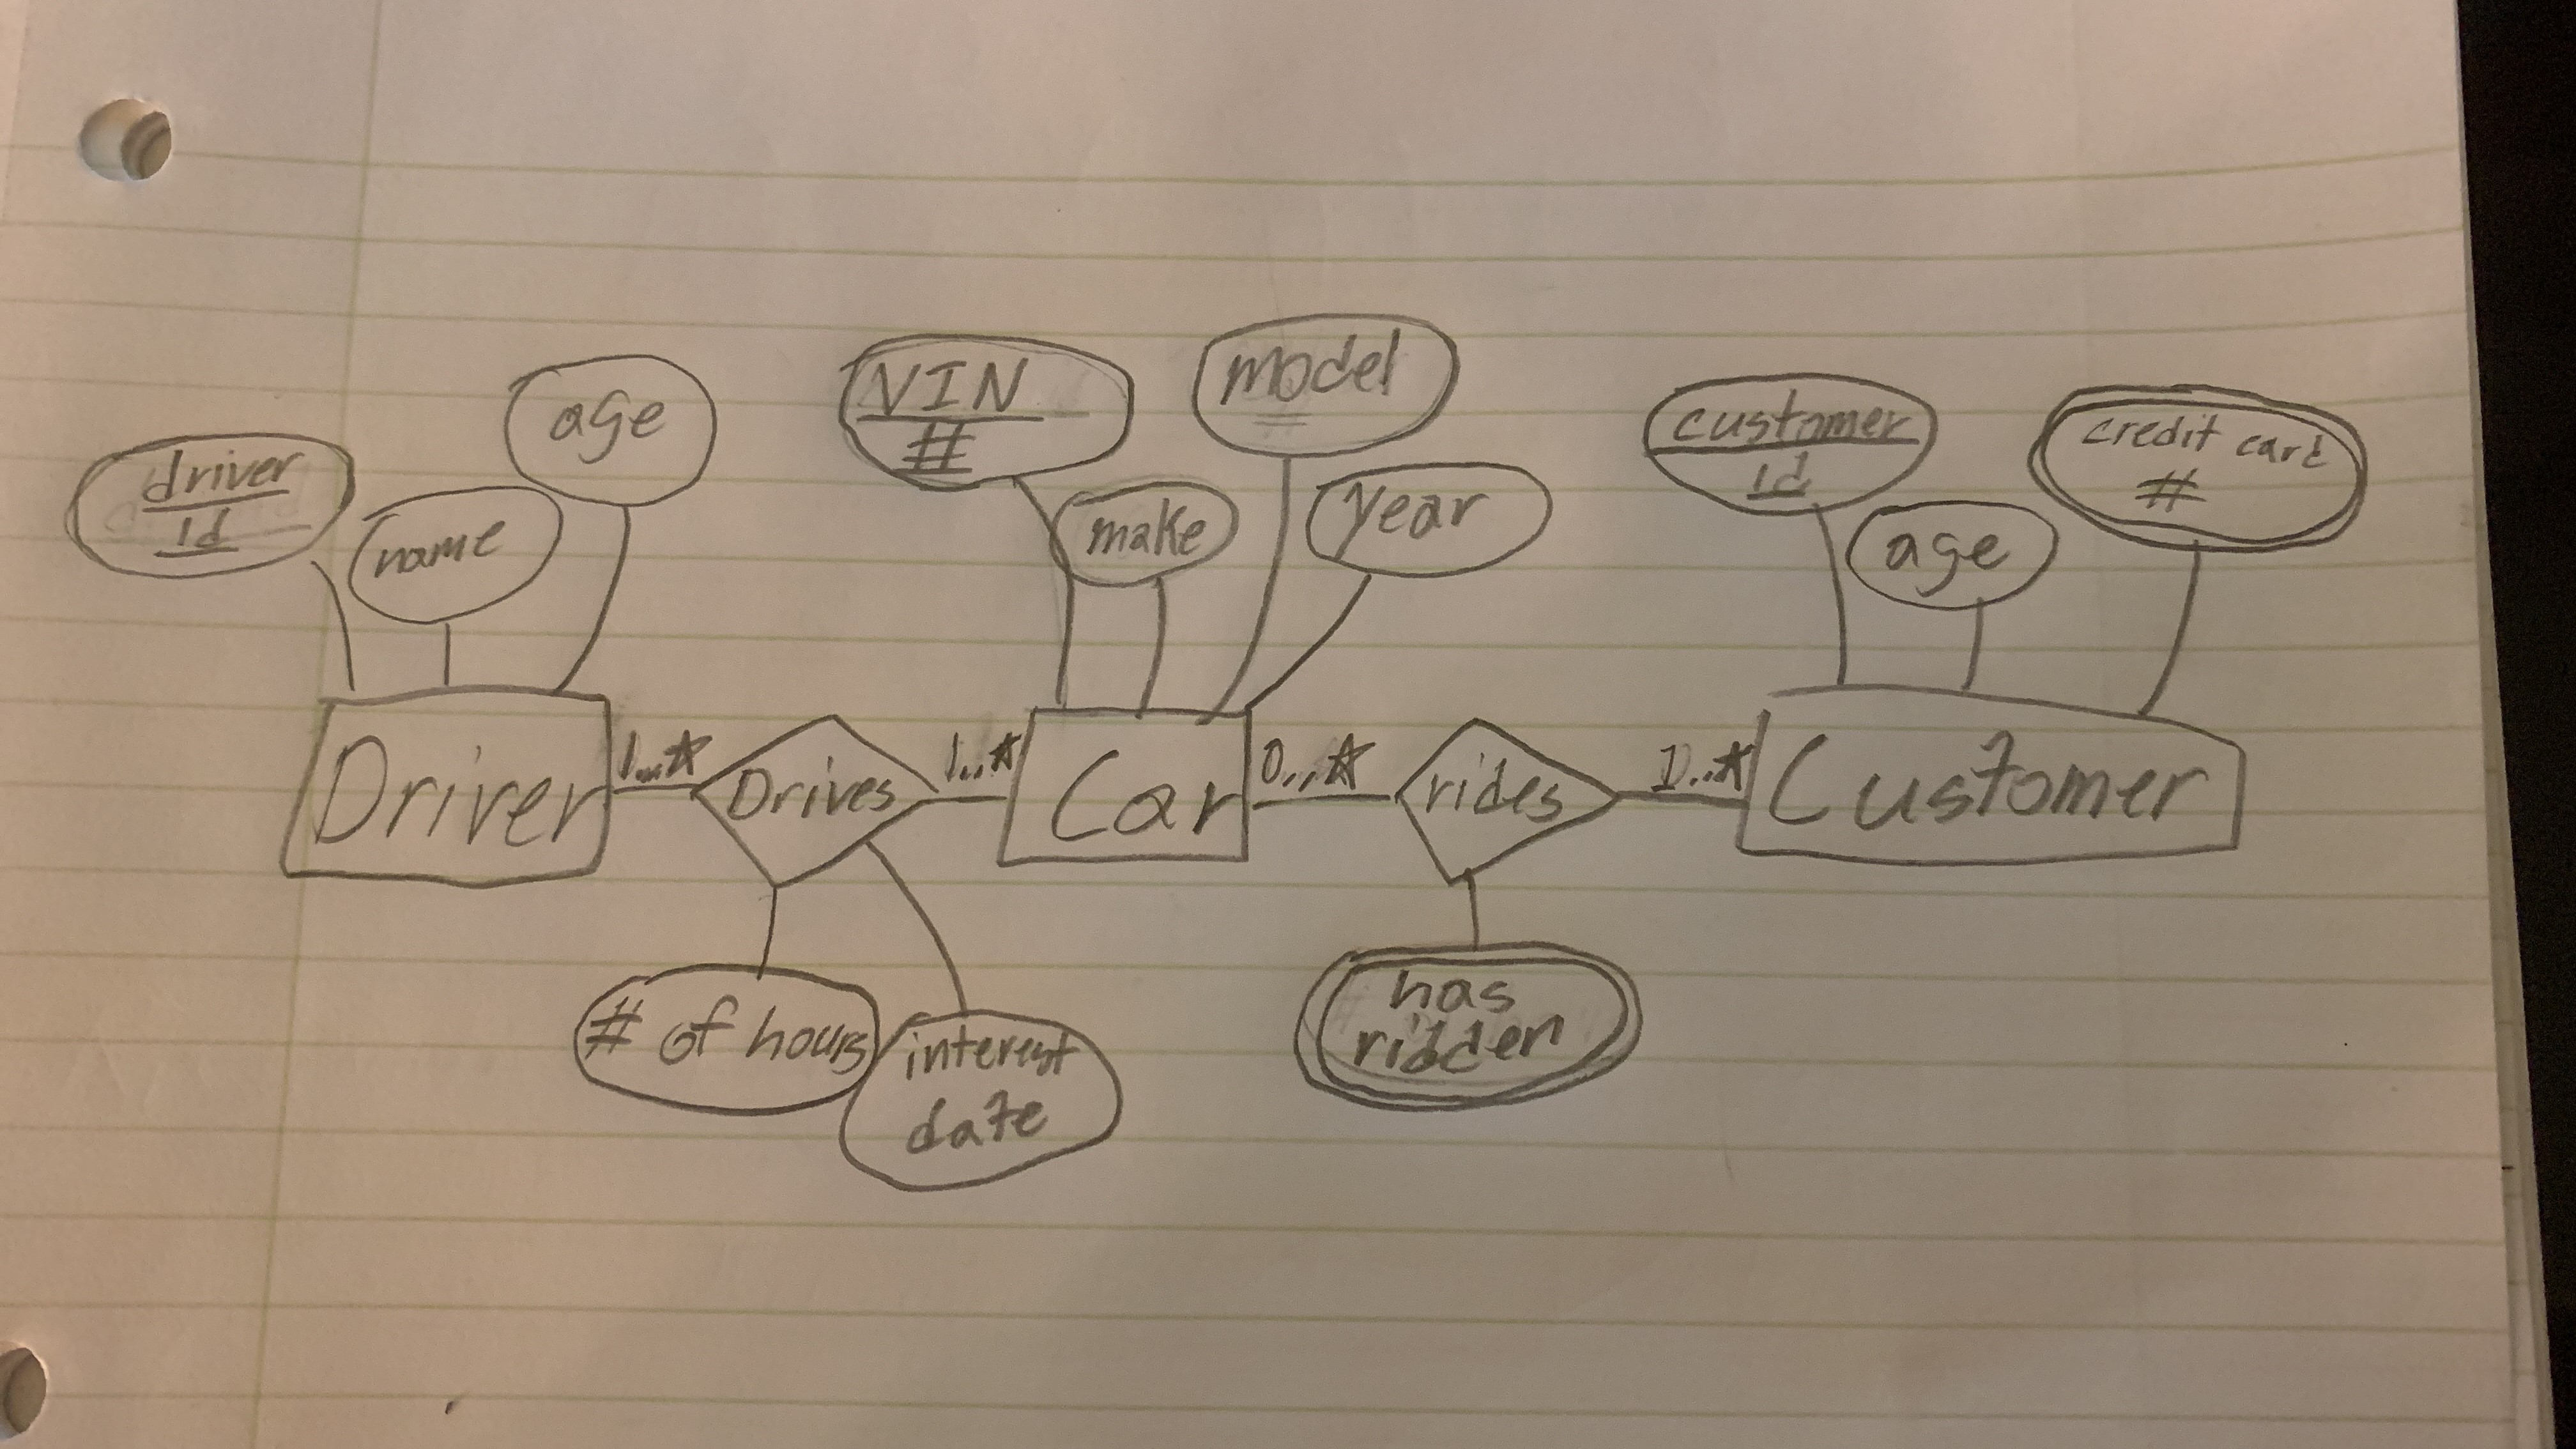 driver
id
name
age
VIN
#
make
model
year
customer
id
age
credit card
#
Driver
1...*
Drives
1...*
Car
0...*
rides
Customer
# of hours
interest
date
has
ridden